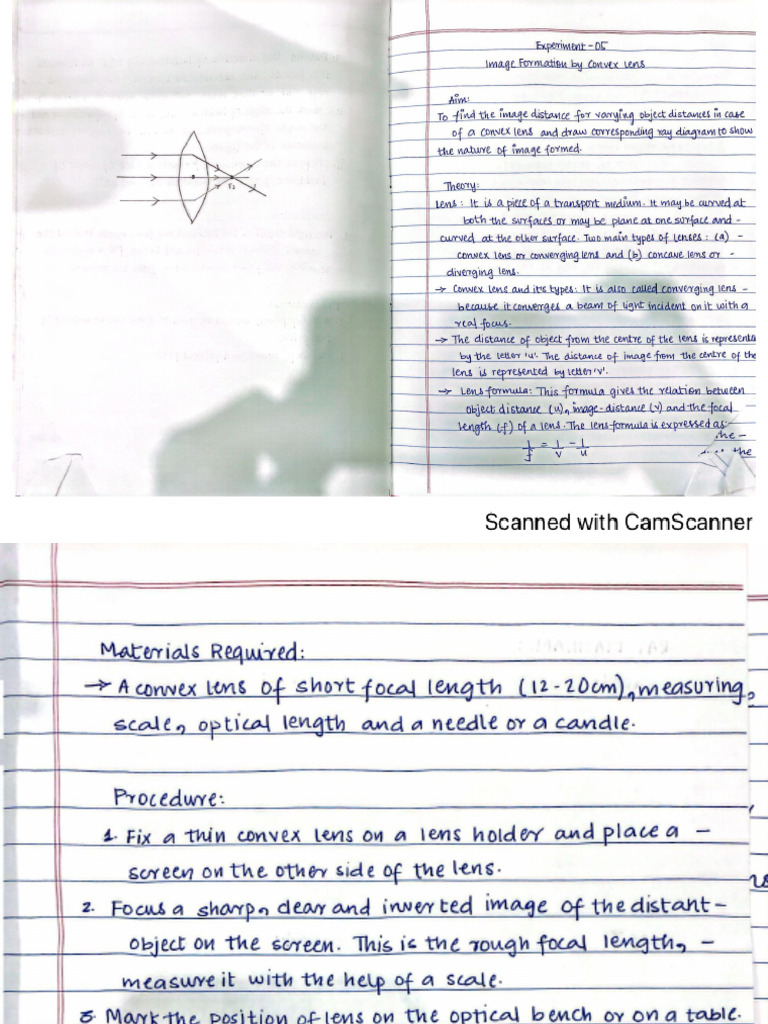 Experiment - 05
Image Formation by Convex Lens
Aim:
To find the image distance for varying object distances in case
of a convex lens and draw corresponding ray diagram to show
the nature of image formed.
Theory:
Lens : It is a piece of a transport medium. It may be curved at
both the surfaces or may be plane at one surface and -
curved at the other surface. Two main types of lenses : (a) -
convex lens or converging lens and (b) concave lens or -
diverging lens.
→ Convex lens and it's types: It is also called converging lens -
because it converges a beam of light incident on it with a
real focus.
→ The distance of object from the centre of the lens is representa
by the letter 'u'. The distance of image from the centre of the
lens is represented by letter 'v'.
→ Lens formula: This formula gives the relation between
object distance (u), image-distance (v) and the focal
length (f) of a lens. The lens formula is expressed as:
1/f = 1/v - 1/u
the -
the
F2
Scanned with CamScanner
Materials Required:
→ A convex lens of short focal length (12-20cm), measuring
scale, optical length and a needle or a candle.
Procedure:
1. Fix a thin convex lens on a lens holder and place a -
screen on the other side of the lens.
2. Focus a sharp, clear and inverted image of the distant -
object on the screen. This is the rough focal length, -
measure it with the help of a scale.
3. Mark the position of lens on the optical bench or on a table.